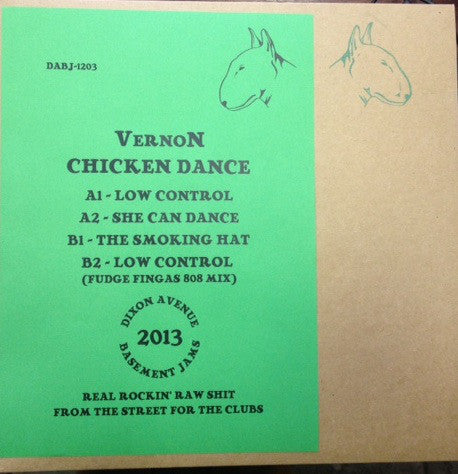 DABJ-1203
VERNON
CHICKEN DANCE
A1 - LOW CONTROL
A2 - SHE CAN DANCE
B1 - THE SMOKING HAT
B2 - LOW CONTROL
(FUDGE FINGAS 808 MIX)
DIXON AVENUE
2013
BASEMENT JAMS
REAL ROCKIN' RAW SHIT
FROM THE STREET FOR THE CLUBS